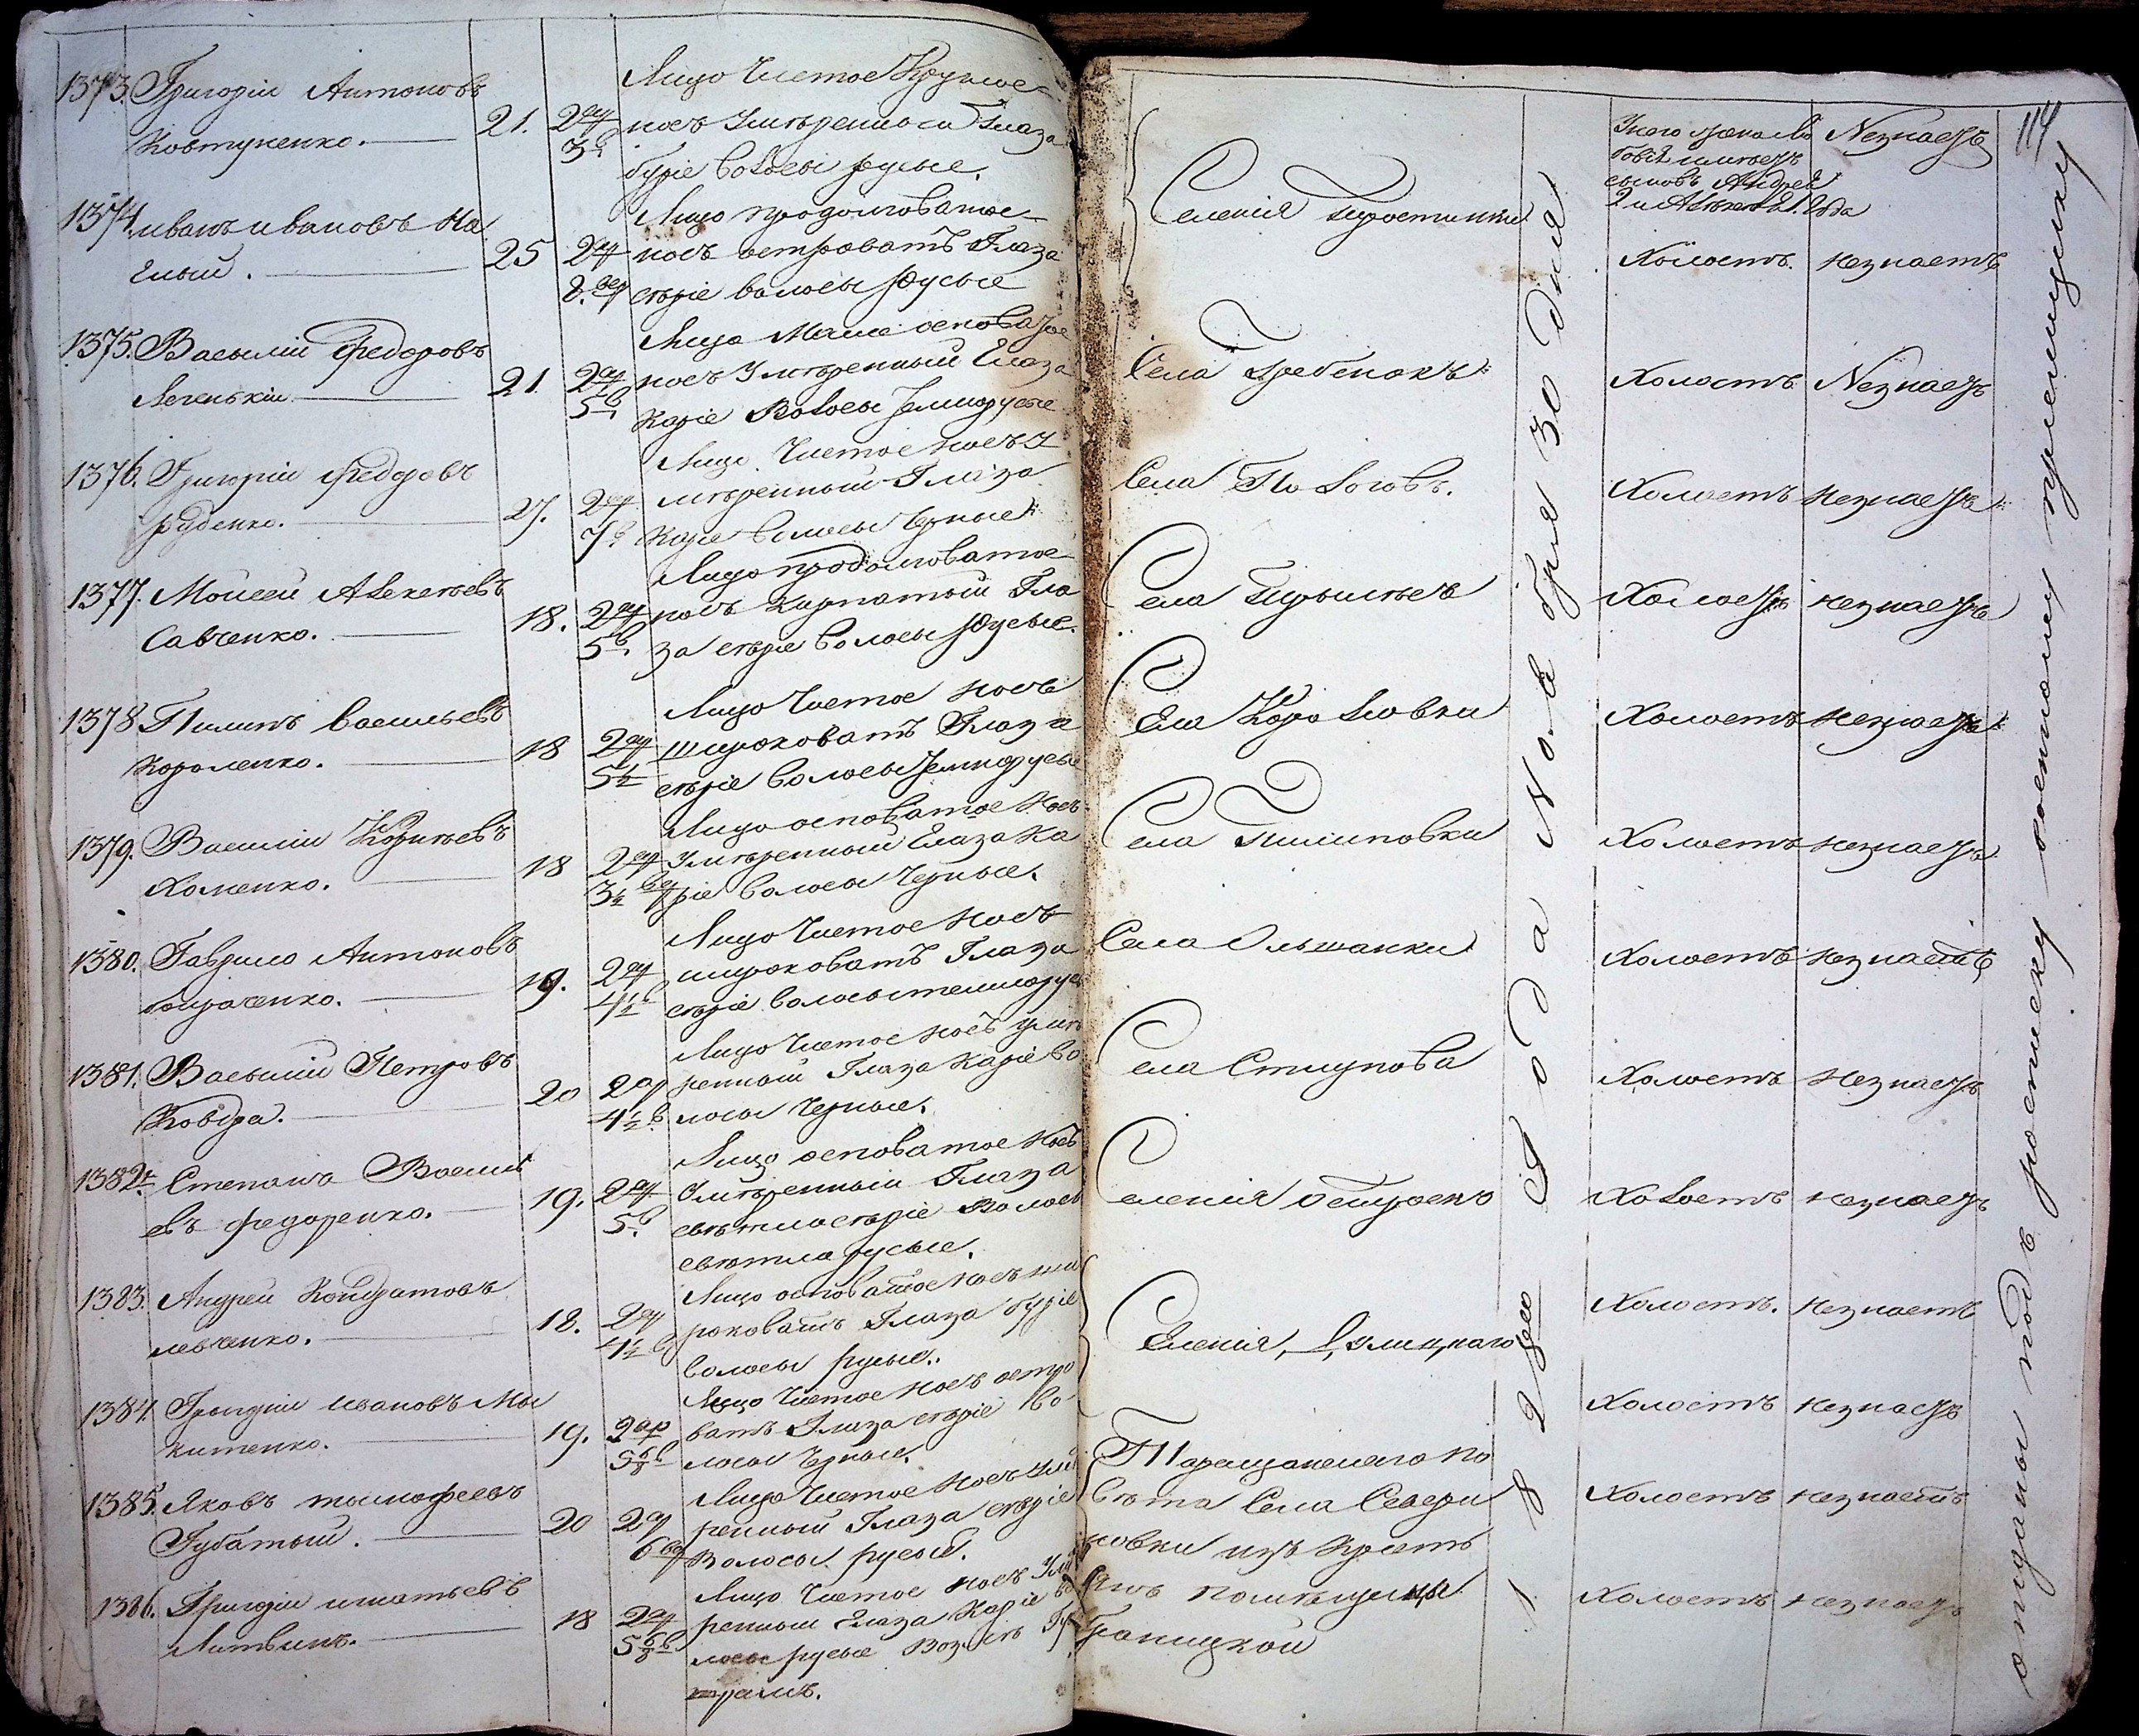 1373. Григорій Антоновъ
Ковтуненко.
21.
2 ар
3 в
Лицо Чистое Круглое
носъ Умѣренной Глаза
буріе волосы русые.
1374. иванъ ивановъ На
глый.
25
2 ар
8. вер
Лицо продолговатое
носъ островатъ Глаза
сѣріе волосы Русые
1375. Василій Федоровъ
Легенькій
21
2 ар
5 в
Лицо Мале осповатое
носъ Умѣренный Глаза
Каріе Волосы темнорусые
1376. Григорій Федоровъ
руденко.
27.
2 ар
7 в
Лицо Чистое носъ У
мѣренный Глаза
Каріе волосы Черные
1377. Моисей Алексѣевъ
Савченко.
18.
2 ар
5 в.
Лицо продолговатое
носъ Кирпатый Гла
за сѣріе волосы Русые.
1378 Пилипъ васильевъ
Короленко.
18
2 ар
5 ½
Лицо Чистое носъ
широковатъ Глаза
сѣріе волосы темнорусые
1379. Василій Корнѣевъ
Хоменко.
18
2 ар
3 ½ вер
Лицо осповатое Носъ
Умѣренный Глаза Ка
ріе волосы Черные.
1380. Гаврило Антоновъ
19.
2 ар
4 ½ в
Лицо Чистое Носъ
широковатъ Глаза
сѣріе волосы темнорус
1381. Василій Петровъ
Ковдра.
20
2 ар
4 ½ в.
Лицо Чистое носъ умѣ
ренный Глаза Каріе во
лосы Черные.
1382. Степанъ Василь
евъ Федоренко.
19.
2 ар
5. в
Лицо осповатое Носъ
Умѣренный Глаза
свѣтлосѣріе Волосы
свѣтлорусые.
1383. Андрей Кондратовъ
левченко.
18.
2 ар
4 ½ в
Лицо осповатое носъ ши
роковатъ Глаза буріе
волосы русые.
1384. Григорій ивановъ Мы
китенко.
19.
2 ар
5 6/8 в
Лицо Чистое носъ остро
ватъ Глаза сѣріе во
лосы Черные.
1385. Яковъ тимофеевъ
Губатый.
20
2 ар
6 вер
Лицо Чистое носъ Умѣ
ренный Глаза сѣріе
Волосы русые.
1386. Григорій игнатьевъ
Литвинъ.
18
2 ар
5 6/8 в
Лицо Чистое носъ Умѣ
ренный Глаза Каріе во
лосы русые
114
Селенія
Села Гребенокъ
Села Пологовъ.
Села
Села Короловки
Села Пилиповки
Села Ольшанки
Села
Селенія Острожковъ
Селенія
Таращанскаго По
вѣта Села Севери
новки изъ Крестъ
янъ помѣщицы
Браницкой
1828 го Года Ноября 30 Дня
сыновъ Андрей
2 и Алексѣй 1. года
Незнаетъ
Холостъ. незнаетъ
Холостъ Незнаетъ
Холостъ незнаетъ
Холостъ незнаетъ
Холостъ незнаетъ
Холостъ незнаетъ
Холостъ незнаетъ
Холостъ незнаетъ
Холостъ незнаетъ
Холостъ. незнаетъ
Холостъ незнаетъ
Холостъ незнаетъ
Холостъ незнаетъ
отданы подъ росписку военному пріемщику